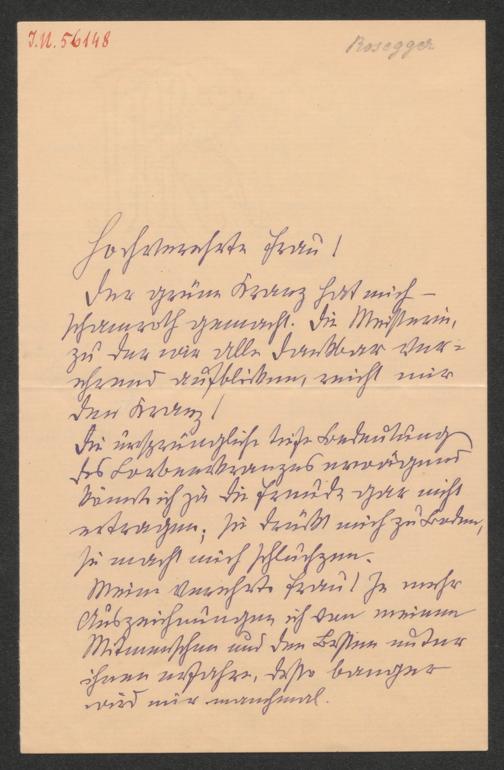 J.N. 56148
Rosegger
Hochverehrte Frau!
Der grüne Kranz hat mich –
schamroth gemacht. Die Meisterin,
zu der wir alle dankbar ver-
ehrend aufblicken, reicht mir
den Kranz!
Die ursprüngliche tiefe Bedeutung
des Lorbeerkranzes erwägend
könnte ich ja die Freude gar nicht
ertragen; sie drückt mich zu Boden,
sie macht mich schluchzen.
Meine verehrte Frau! Je mehr
Auszeichnungen ich von meinen
Mitmenschen und den Besten unter
ihnen erfahre, desto banger
wird mir manchmal.